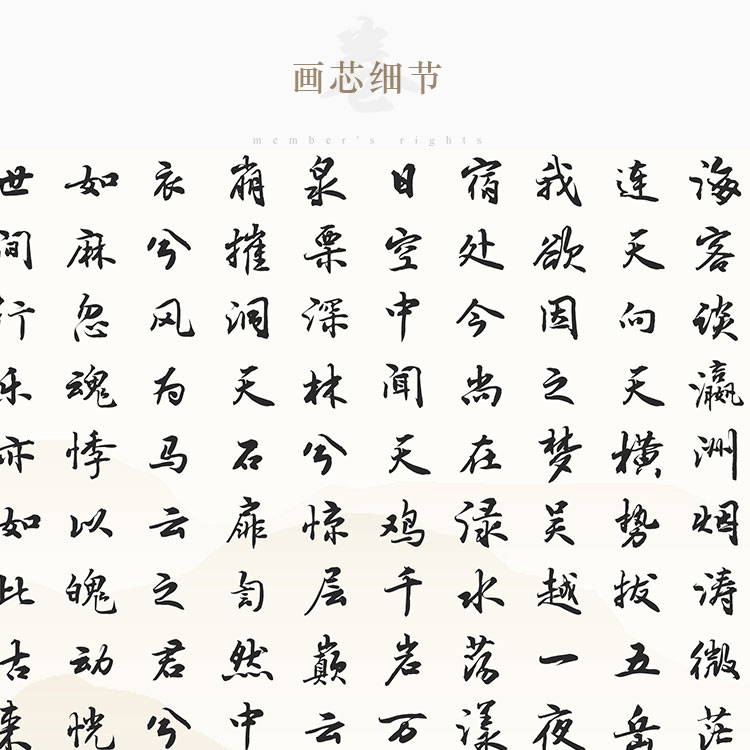 卷
画芯细节
member's rights
海客谈瀛洲烟涛微茫
连天向天横势拔五岳
我欲因之梦吴越一夜
宿处今尚在渌水荡漾
日空中闻天鸡千岩万
泉栗深林兮惊层巅云
崩摧洞天石扉訇然中
衣兮风为马云之君兮
如麻忽魂悸以魄动恍
世间行乐亦如此古来